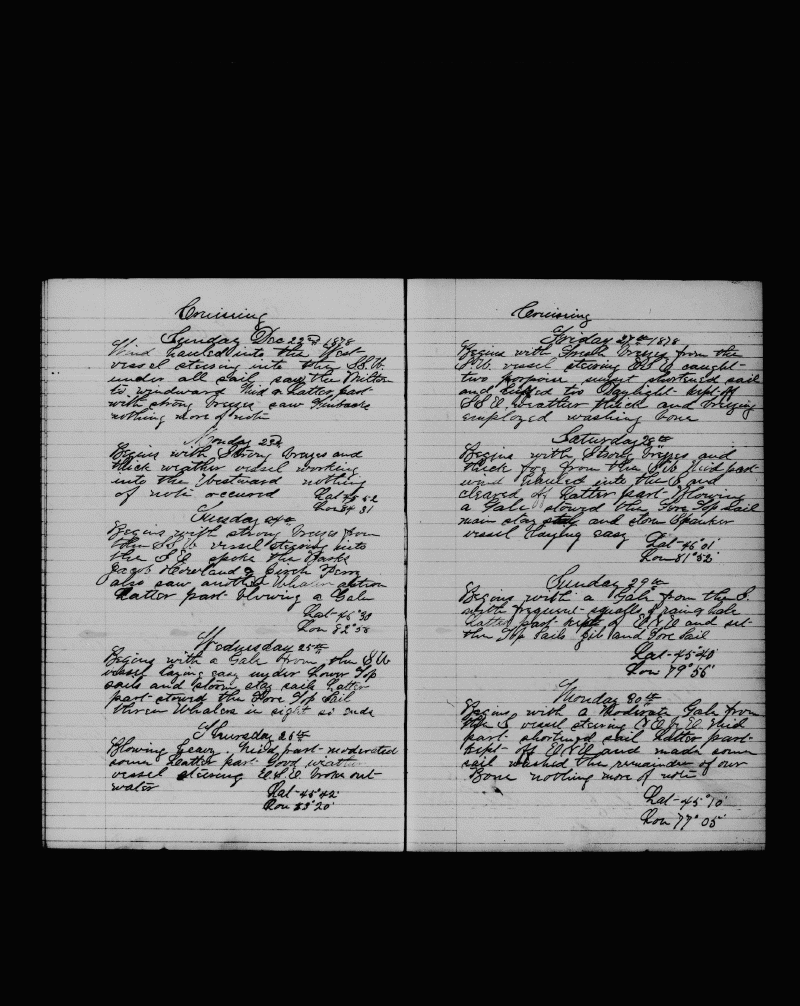 Cruising
Sunday Dec 22nd 1878
Wind hauled into the West
vessel steering into the S.S.W.
under all sail saw the Milton
to windward Mid & Latter part
with strong breeze saw finbacks
nothing more of note
Monday 23d
Begins with Strong breezes and
thick weather vessel working
into the Westward nothing
of note occured Lat 42
Lon 84 31
Tuesday 24th
Begins with strong breezes from
the S.S.W. vessel steering into
the S.E. spoke the Bark
Jacob Howland &
also saw another Whaler
Latter part blowing a Gale
Lat-46°30
Lon 82°58
Wednesday 25th
Begins with a Gale from the S.W.
vessel laying easy under Lower Top
sails and storm stay sails Latter
part stowed the Fore Top Sail
three Whalers in sight so ends
Thursday 26th
Blowing heavy. Mid part moderated
some Latter part Good weather
vessel steering E.S.E. broke out
water Lat-45°42'
Lon 83°20'
Cruising
Friday 27th 1878
Begins with fresh breezes from the
S.W. vessel steering caught
two porpoise, shortened sail
and luffed too Daylight- kept off
S.S.E. weather thick and breezing
employed washing bone
Saturday 28th
Begins with Strong breezes and
thick fog from the Mid part-
wind hauled into the S and
cleared off Latter part Blowing
a Gale stowed the Fore Top Sail
main stay and storm Spanker
vessel laying easy Lat-46°01'
Lon 81°52'
Sunday 29th
Begins with a Gale from the S.
with frequent squalls of rain & hale
Latter part kept off E.N.E and set
the Top Sails Jib and Fore Sail
Lat-45°40'
Lon 79°56'
Monday 30th
Begins with a Moderate Gale from
the S vessel steering Mid
part shortened sail Latter part-
kept off E.N.E and made some
sail washed the remainder of our
Bone nothing more of note
Lat-45°10'
Lon 77°05'